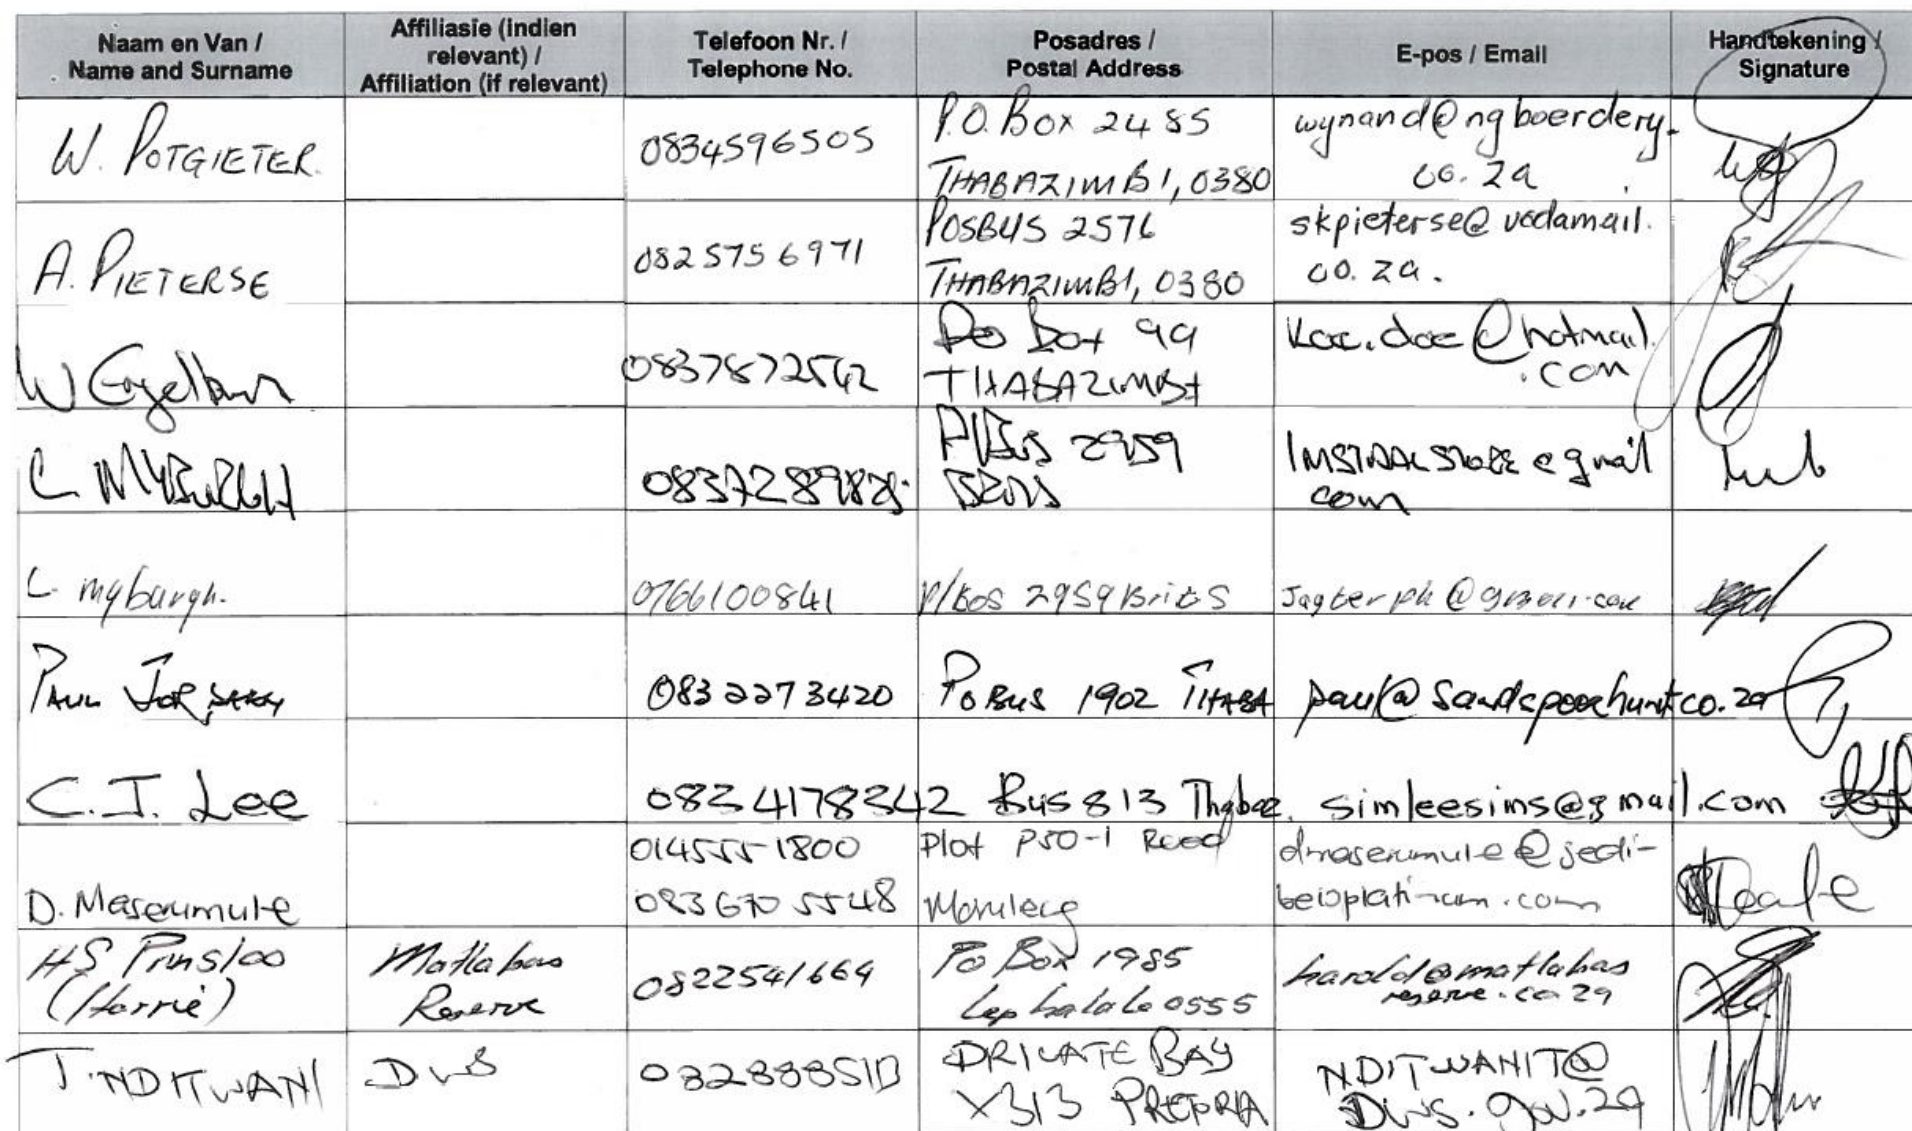 Naam en Van /
Name and Surname
Affiliasie (indien
relevant) /
Affiliation (if relevant)
Telefoon Nr. /
Telephone No.
Posadres /
Postal Address
E-pos / Email
Handtekening /
Signature
W. POTGIETER.
0834596505
P.O. Box 2485
THABAZIMBI, 0380
wynand@ngboerdery.
co.za
A. PIETERSE
0825756971
POSBUS 2576
THABAZIMBI, 0380
skpieterse@vodamail.
co.za.
W
0837872562
Po Box 99
THABAZIMBI
@hotmail.
.com
C MYBURGH
P/Bus 2959
@gmail
com
L. myburgh.
0766100841
P/Bos 2959 Brits
PAUL
0832273420
PO BUS 1902 THABA
C.J. Lee
0834178342
Bus 813
simleesims@gmail.com
D. Maserumule
014555-1800
083 670 5548
Plot P50-1 Road
dmaserumule@sedi-
beloplatinum.com
HS Prinsloo
(Harrie)
Matlabas
Reserve
0822541664
PO Box 1985
Lephalale 0555
harold@matlabas
reserve.co.za
T. NDITWANI
DWS
PRIVATE BAG
X313 PRETORIA
NDITWANIT@
DWS.gov.za